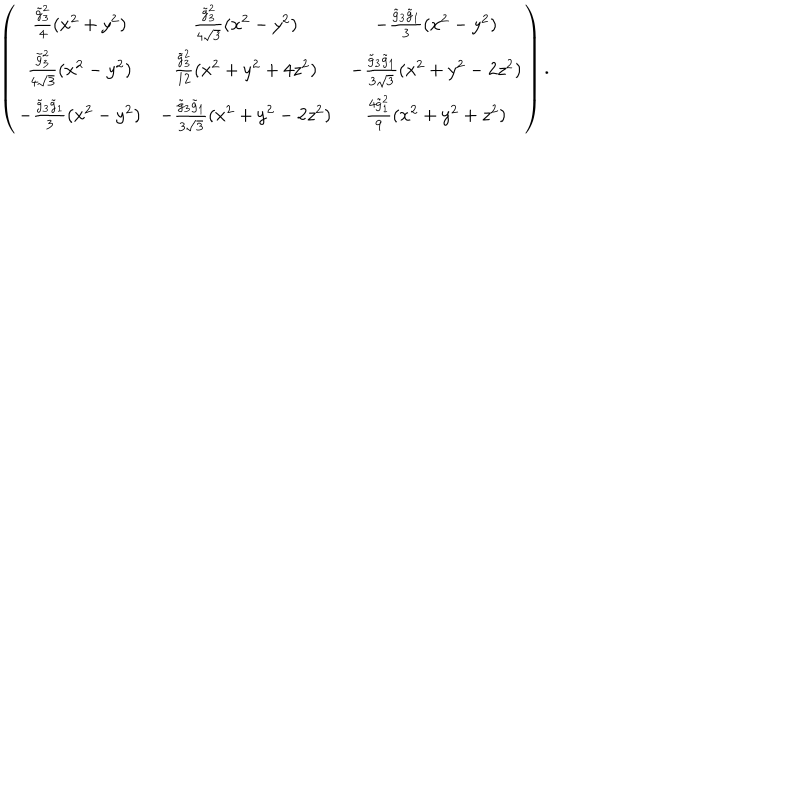 \left( \begin{array}{ccc} \frac{\tilde{g}_3^2}{4}(x^2+y^2) & \frac{\tilde{g}_3^2}{4\sqrt{3}}(x^2-y^2) & -\frac{\tilde{g}_3\tilde{g}_1}{3}(x^2-y^2) \\
\frac{\tilde{g}_3^2}{4\sqrt{3}}(x^2-y^2) & \frac{\tilde{g}_3^2}{12}(x^2+y^2+4z^2) & -\frac{\tilde{g}_3\tilde{g}_1}{3\sqrt{3}}(x^2+y^2-2z^2) \\
-\frac{\tilde{g}_3\tilde{g}_1}{3}(x^2-y^2) & -\frac{\tilde{g}_3\tilde{g}_1}{3\sqrt{3}}(x^2+y^2-2z^2) & \frac{4\tilde{g}_1^2}{9}(x^2+y^2+z^2) \end{array} \right).